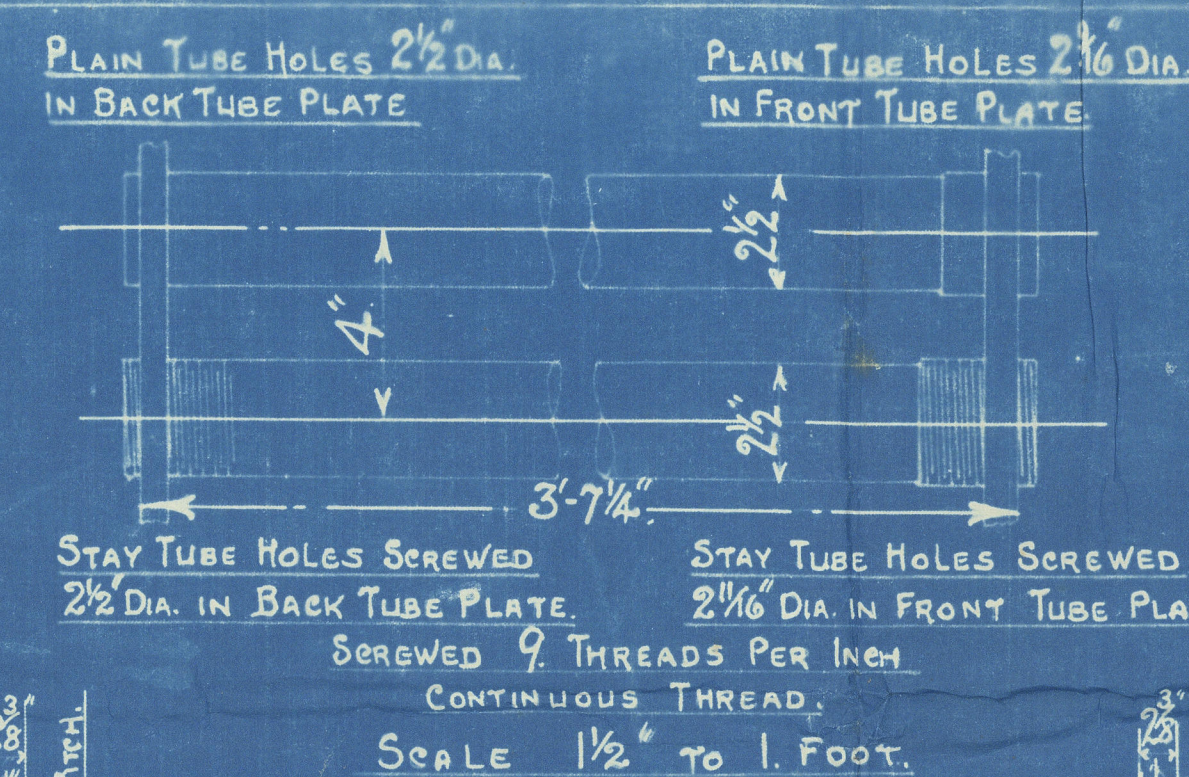 PLAIN TUBE HOLES 2½" DIA.
IN BACK TUBE PLATE
PLAIN TUBE HOLES 2 9/16" DIA.
IN FRONT TUBE PLATE
2½"
4"
2½"
3'-7¼"
STAY TUBE HOLES SCREWED
2½" DIA. IN BACK TUBE PLATE.
STAY TUBE HOLES SCREWED
2 11/16" DIA. IN FRONT TUBE PLA
SCREWED 9. THREADS PER INCH
CONTINUOUS THREAD.
SCALE 1½" TO 1. FOOT.
2 3/8"